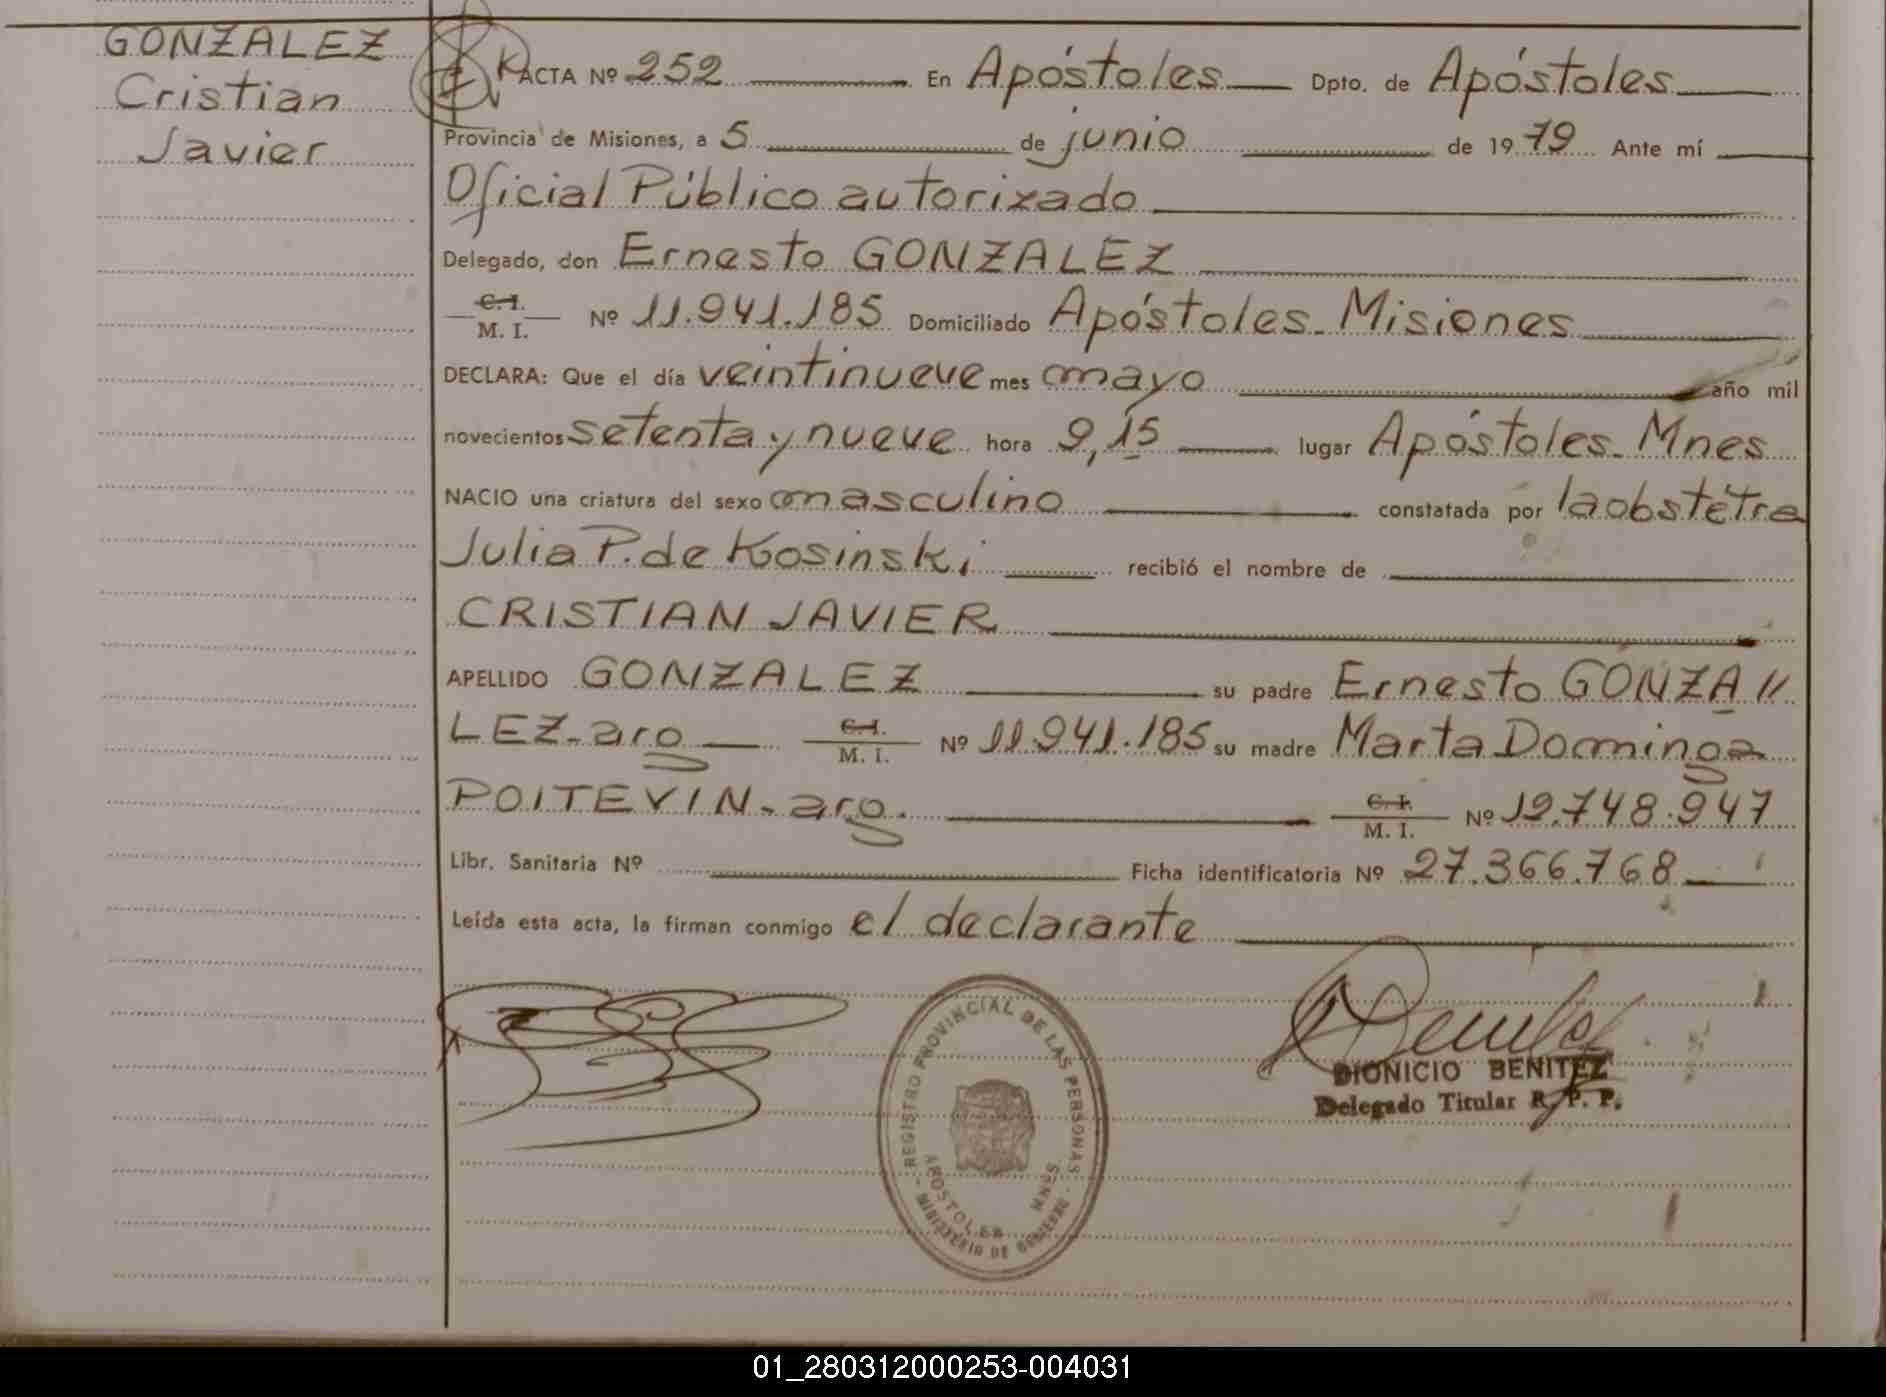 GONZALEZ
Cristian
Javier
ACTA Nº 252 En Apóstoles Dpto. de Apóstoles
Provincia de Misiones, a 5 de junio de 1979 Ante mí
Oficial Público autorizado
Delegado, don Ernesto GONZALEZ
C. I.
M. I. Nº 11.941.185 Domiciliado Apóstoles - Misiones
DECLARA: Que el día veintinueve mes mayo año mil
novecientos setenta y nueve hora 9,15 lugar Apóstoles - Mnes
NACIO una criatura del sexo masculino constatada por la obstétra
Julia P. de Kosinski recibió el nombre de
CRISTIAN JAVIER
APELLIDO GONZALEZ su padre Ernesto GONZA //
LEZ - arg C. I. M. I. Nº 11.941.185 su madre Marta Dominga
POITEVIN - arg. C. I. M. I. Nº 12.748.947
Libr. Sanitaria Nº Ficha identificatoria Nº 27.366.768
Leída esta acta, la firman conmigo el declarante
REGISTRO PROVINCIAL DE LAS PERSONAS
APOSTOLES MNES
MINISTERIO DE GOBIERNO
DIONICIO BENITEZ
Delegado Titular R. P. P.
01_280312000253-004031